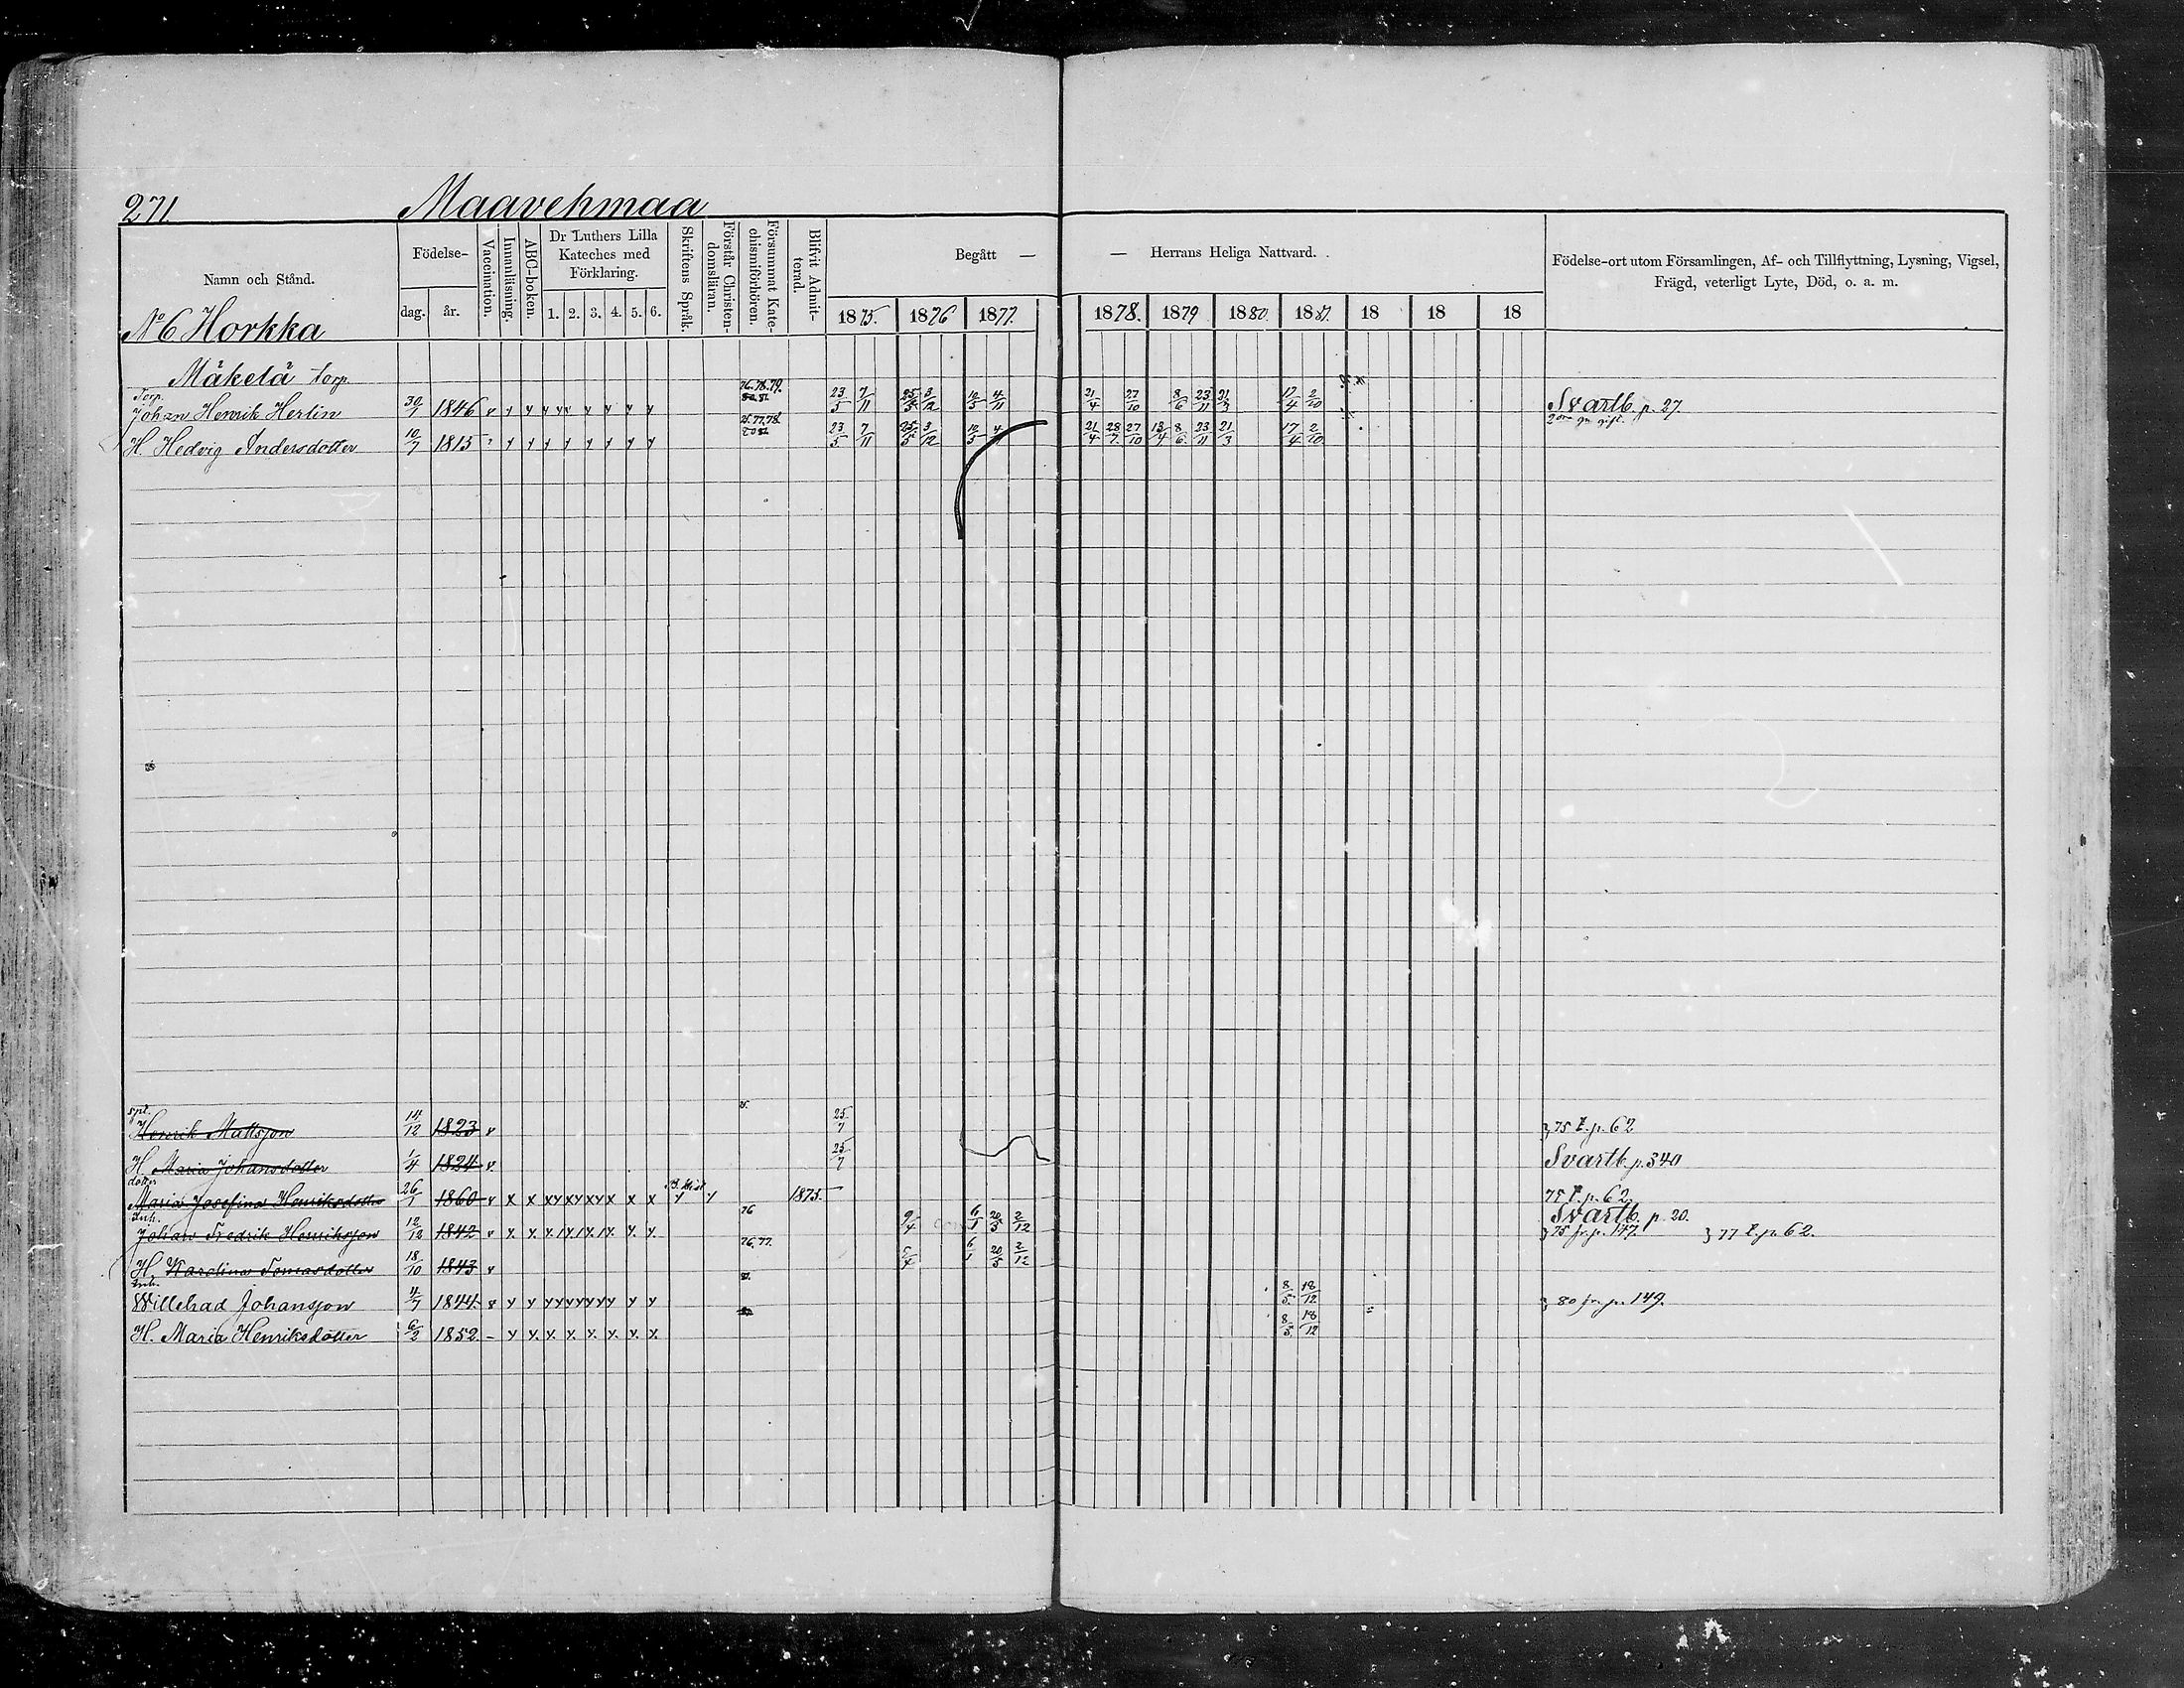 271 Maavehmaa
Namn och Stånd. Födelse- dag. år. Vaccination. Innanläsning. ABC-boken. Dr Luthers Lilla Kateches med Förklaring. 1. 2. 3. 4. 5. 6. Skriftens Språk. Förstår Christen-domsläran. Försummat Kate-chismiförhören. Blifvit Admit-terad. Begått — — Herrans Heliga Nattvard. Födelse-ort utom Församlingen, Af- och Tillflyttning, Lysning, Vigsel, Frägd, veterligt Lyte, Död, o. a. m.
1875. 1876 1877. 1878. 1879 1880 1881. 18 18 18
No 6 Horkka
Mäkelä torp.
76.78.79.
Torp.
Johan Henrik Herlin 30/1 1846 23/5 7/11 25/5 3/12 10/5 4/11 21/4 27/10 8/6 23/11 21/3 17/4 2/10 Svartb. p. 27.
H. Hedvig Andersdotter 10/7 1815 23/5 7/11 25/5 3/12 10/5 4/11 21/4 28/7 27/10 13/4 8/6 23/11 21/3 17/4 2/10
spl.
Henrik Mattsson 14/12 1823 v 25/7 75 t. p. 62
H. Maria Johansdotter 1/4 1824 v. 25/7 Svartb. p. 340
dotter
Maria Josefina Henriksdotter 26/1 1860 1875. 75 t. p. 62.
Svartb. p. 20.
Inh.
Johan Fredrik Henriksson 12/12 1842 76 9/4 6/1 20/5 2/12 75 fr. p. 147. 77 t. p. 62.
H. Karolina Tomasdotter 18/10 1843 v 76.77. 6/1 20/5 2/12
Inh.
Willehad Johansson 4/7 1844 8/5 18/12 80 fr. p. 149.
H. Maria Henriksdotter 6/2 1852 8/5 18/12